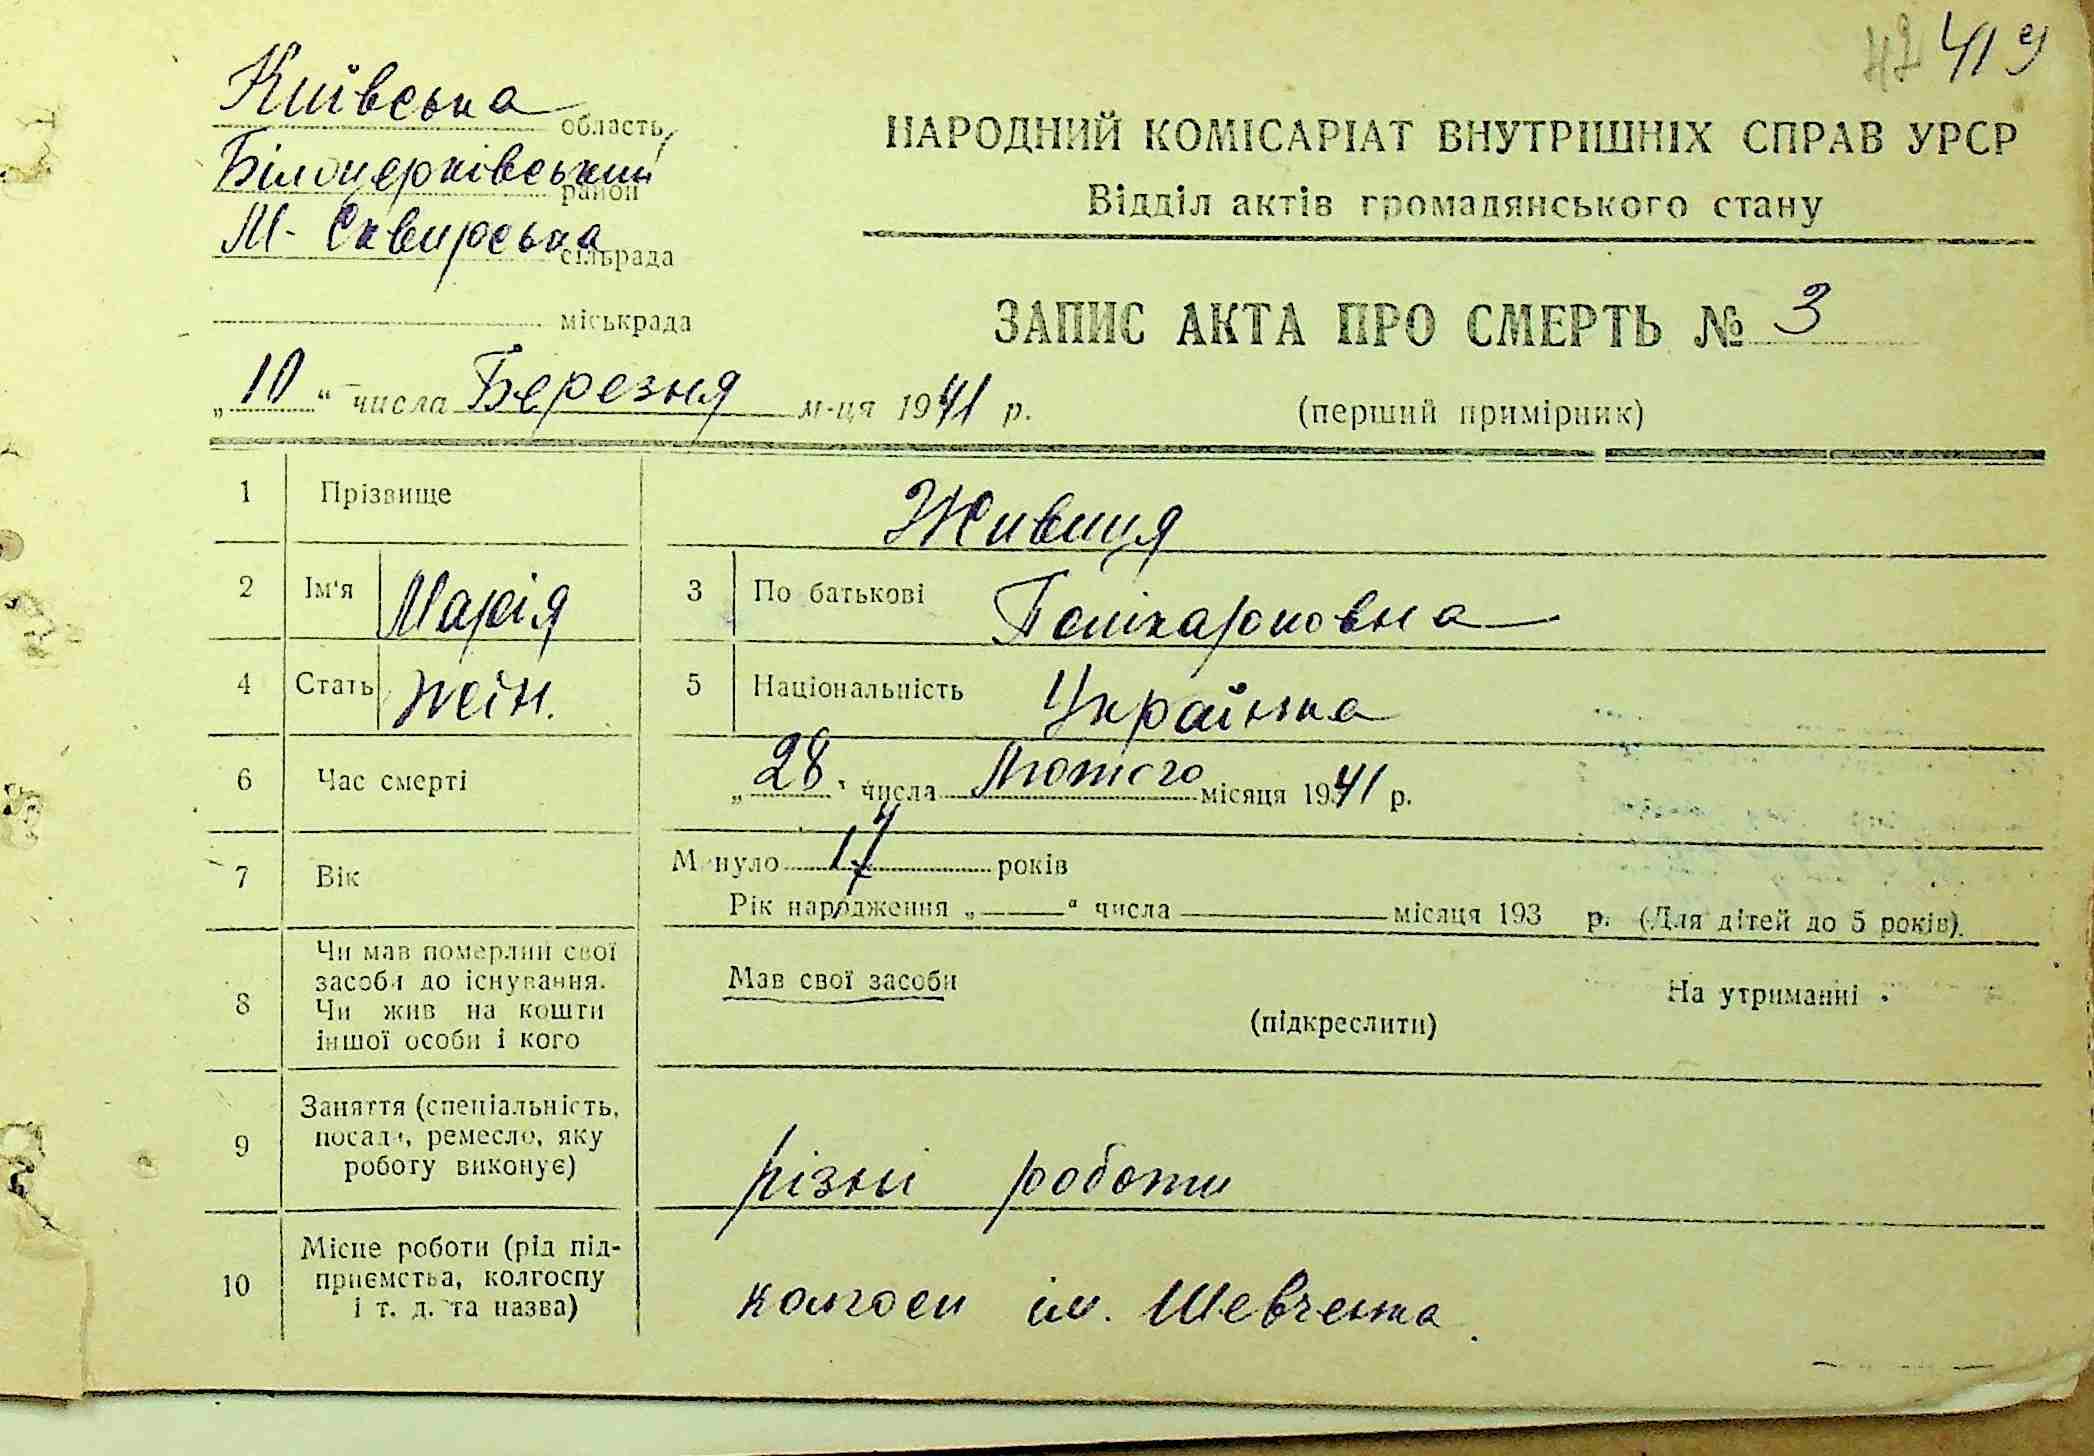 419
Київська область
Білоцерківський район
М-Сквирська сільрада
міськрада
НАРОДНИЙ КОМІСАРІАТ ВНУТРІШНІХ СПРАВ УРСР
Відділ актів громадянського стану
ЗАПИС АКТА ПРО СМЕРТЬ № 3
(перший примірник)
„10“ числа Березня м-ця 1941 р.
1 Прізвище Живиця
2 Ім'я Марія 3 По батькові Полікарповна
4 Стать жін. 5 Національність Українка
6 Час смерті „28“ числа Лютого місяця 1941 р.
7 Вік Минуло 17 років
Рік народження „—“ числа — місяця 193 р. (Для дітей до 5 років).
8 Чи мав померлий свої
засоби до існування.
Чи жив на кошти
іншої особи і кого
Мав свої засоби На утриманні
(підкреслити)
9 Заняття (спеціальність,
посада, ремесло, яку
роботу виконує)
різні роботи
10 Місце роботи (рід під-
приємства, колгоспу
і т. д. та назва)
колгосп ім. Шевченка.